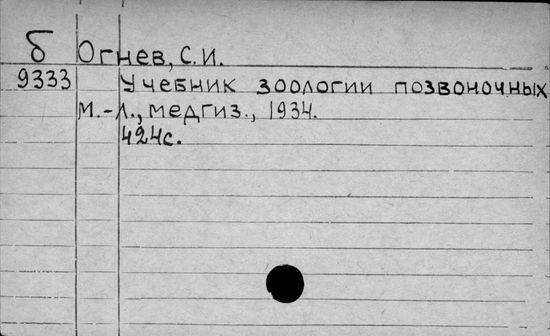 Б Огнев, С.И.
9333 Учебник зоологии позвоночных
М.-Л., медгиз., 1934.
424с.